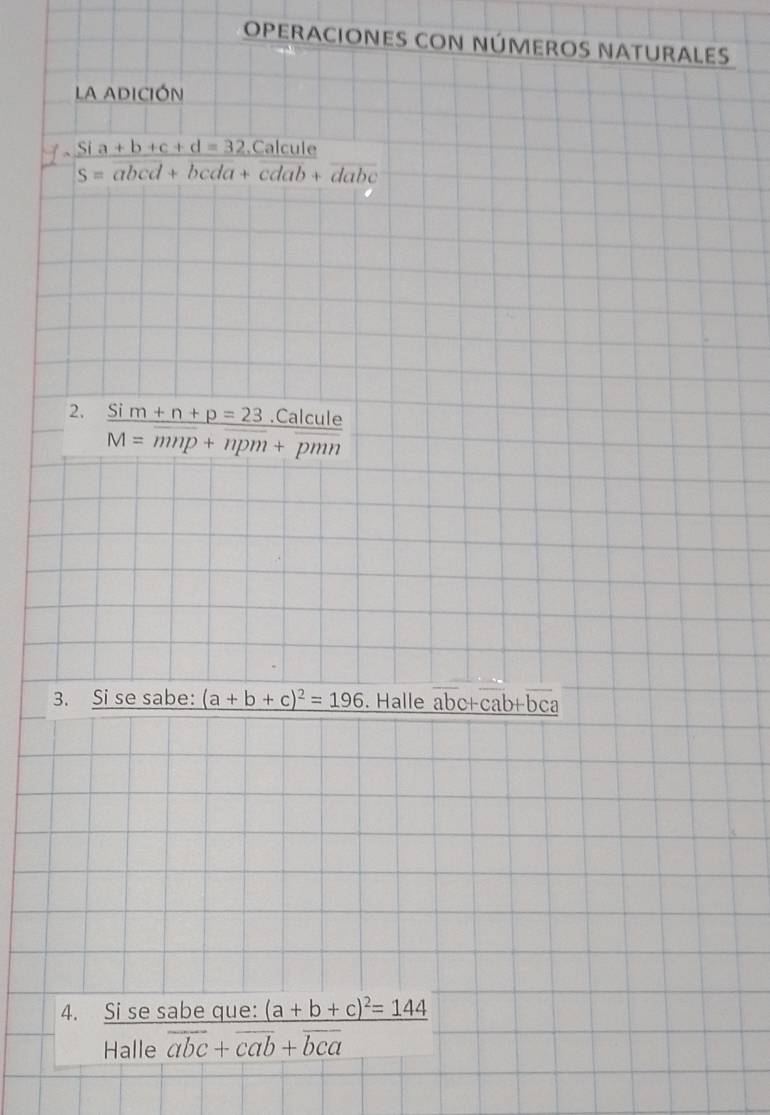 OPERACIONES CON NÚMEROS NATURALES
LA ADICIÓN
1. Si a + b +c + d = 32.Calcule
S = abcd + bcda + cdab + dabc
2. Si m + n + p = 23 .Calcule
M = mnp + npm + pmn
3. Si se sabe: (a + b + c)² = 196. Halle abc+cab+bca
4. Si se sabe que: (a + b + c)²= 144
Halle abc + cab + bca